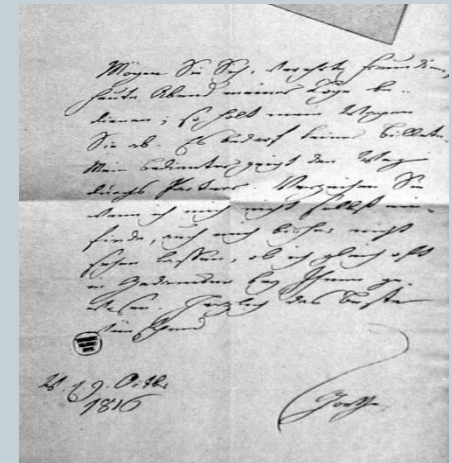 Mögen Sie Sich, verehrte Freundin,
heute Abend meiner Loge be-
dienen; so holt mein Wagen
Sie ab. Es bedarf keiner Billete.
Mein Bedienter zeigt den Weg
durchs Parterre. Verzeihen Sie
wenn ich mich nicht selbst ein-
finde, auch mich bisher nicht
sehen lassen, ob ich gleich oft
in Gedancken bey Ihnen ge-
wesen. Herzlich das Beste
wünschend
W. d. 9. Octbr.
1816
Goethe